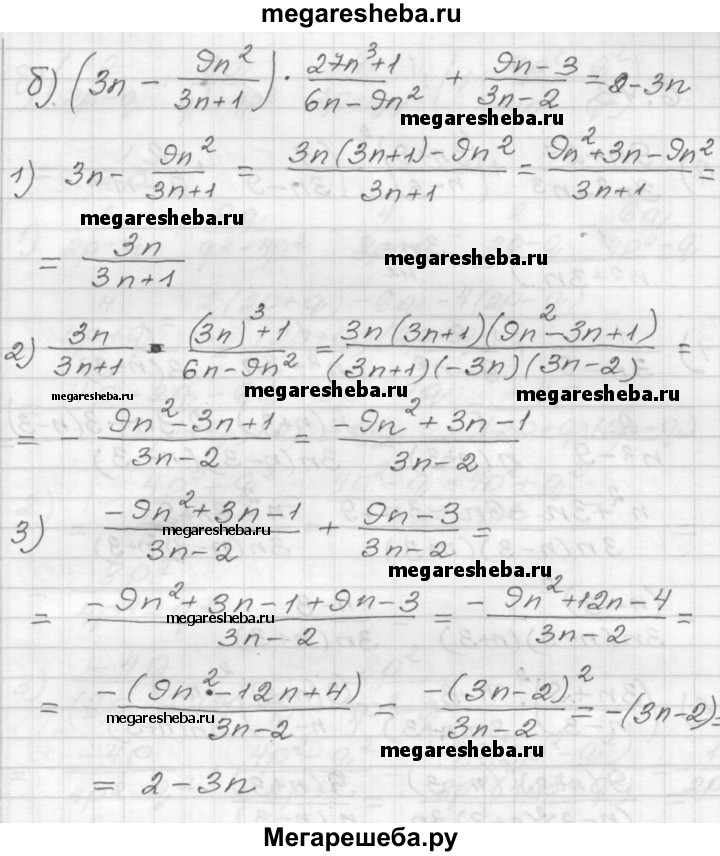 megaresheba.ru
б) (3n - 9n²/(3n+1)) · (27n³+1)/(6n-9n²) + (9n-3)/(3n-2) = 2-3n
megaresheba.ru
1) 3n - 9n²/(3n+1) = (3n(3n+1)-9n²)/(3n+1) = (9n²+3n-9n²)/(3n+1) =
megaresheba.ru
= 3n/(3n+1)
megaresheba.ru
2) 3n/(3n+1) · ((3n)³+1)/(6n-9n²) = (3n(3n+1)(9n²-3n+1))/((3n+1)(-3n)(3n-2)) =
megaresheba.ru megaresheba.ru megaresheba.ru
= - (9n²-3n+1)/(3n-2) = (-9n²+3n-1)/(3n-2)
3) (-9n²+3n-1)/(3n-2) + (9n-3)/(3n-2) =
megaresheba.ru
megaresheba.ru
= (-9n²+3n-1+9n-3)/(3n-2) = (-9n²+12n-4)/(3n-2) =
megaresheba.ru
= (-(9n²-12n+4))/(3n-2) = (-(3n-2)²)/(3n-2) = -(3n-2) =
megaresheba.ru
megaresheba.ru
= 2-3n
Мегарешеба.ру